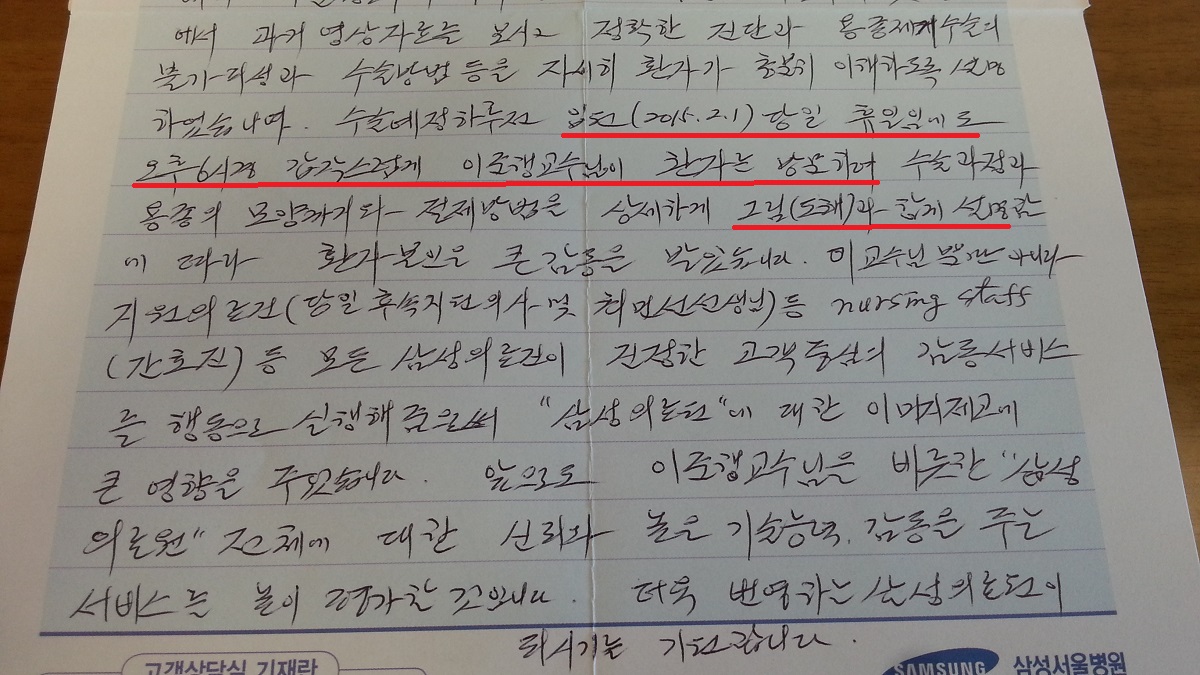 에서 과거 영상자료를 보시고 정확한 진단과 용종제거수술의
불가피성과 수술방법 등을 자세히 환자가 충분히 이해하도록 설명
하였습니다. 수술예정하루전 입원(2015.2.1) 당일 휴일임에도
오후6시경 갑작스럽게 이준행교수님이 환자를 방문하여 수술과정과
용종의 모양까기와 절제방법을 상세하게 그림(도해)과 함께 설명함
에 따라 환자본인은 큰 감동을 받았습니다. 이교수님 뿐만 아니라
지원의료진(당일 후속지원의사 및 최민선선생님)등 nursing staff
(간호진) 등 모든 삼성의료진이 진정한 고객중심의 감동서비스
를 행동으로 실행해 줌으로써 "삼성의료원"에 대한 이미지제고에
큰 영향을 주었습니다. 앞으로도 이준행교수님을 비롯한 "삼성
의료원" 전체에 대한 신뢰와 높은 기술능력, 감동을 주는
서비스를 높이 평가할 것입니다. 더욱 번영하는 삼성의료원이
되시기를 기원합니다.
고객상담실 기재란
SAMSUNG 삼성서울병원